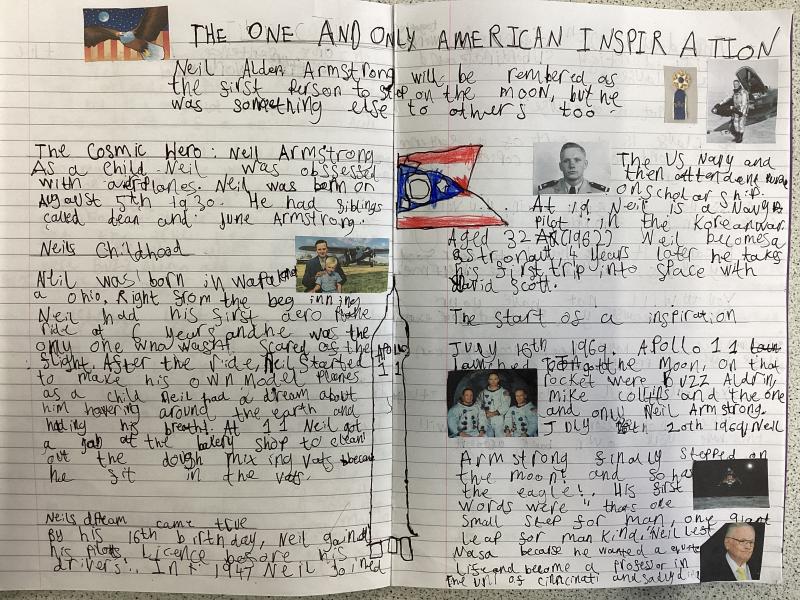 THE ONE AND ONLY AMERICAN INSPIRATION
Neil Alden Armstrong will be rembered as
the first person to step on the moon, but he
was something else to others too.
The Cosmic Hero: Neil Armstrong
As a child Neil was obsessed
with aeroplanes. Neil was born on
August 5th 1930. He had siblings
called dean and June Armstrong.
Neils Childhood
Neil was born in
a ohio. Right from the beginning
Neil had his first aero plane
ride at 6 years and he was the
only one who wasn't scared of the
flight. After the ride, Neil started
to make his own model planes
as a child Neil had a dream about
him hovering around the earth and
holding his breath. At 11 Neil got
a job at the bakery shop to clean
out the dough mixing vats because
he fit in the vats.
Neils dream came true
By his 16th birthday, Neil gained
his pilots licence before his
drivers'. In 1947 Neil joined
Apollo
11
The US Navy and
then attended
on scholarship.
At 19 Neil is a Navy
pilot in the Korean war.
Aged 32 (1962) Neil becomes a
astronaut. 4 years later he takes
his first trip into space with
David Scott.
The start of a inspiration
July 16th 1969. Apollo 11
launched to the Moon, on that
rocket were Buzz Aldrin,
mike collins and the one
and only Neil Armstrong.
July 20th 1969, Neil
Armstrong finally stepped on
the moon! and so has
the eagle!. His first
words were "thats one
small step for man, one giant
leap for man kind. Neil left
Nasa because he wanted a
Life and become a professor in
the uni of cinncinati and sadly